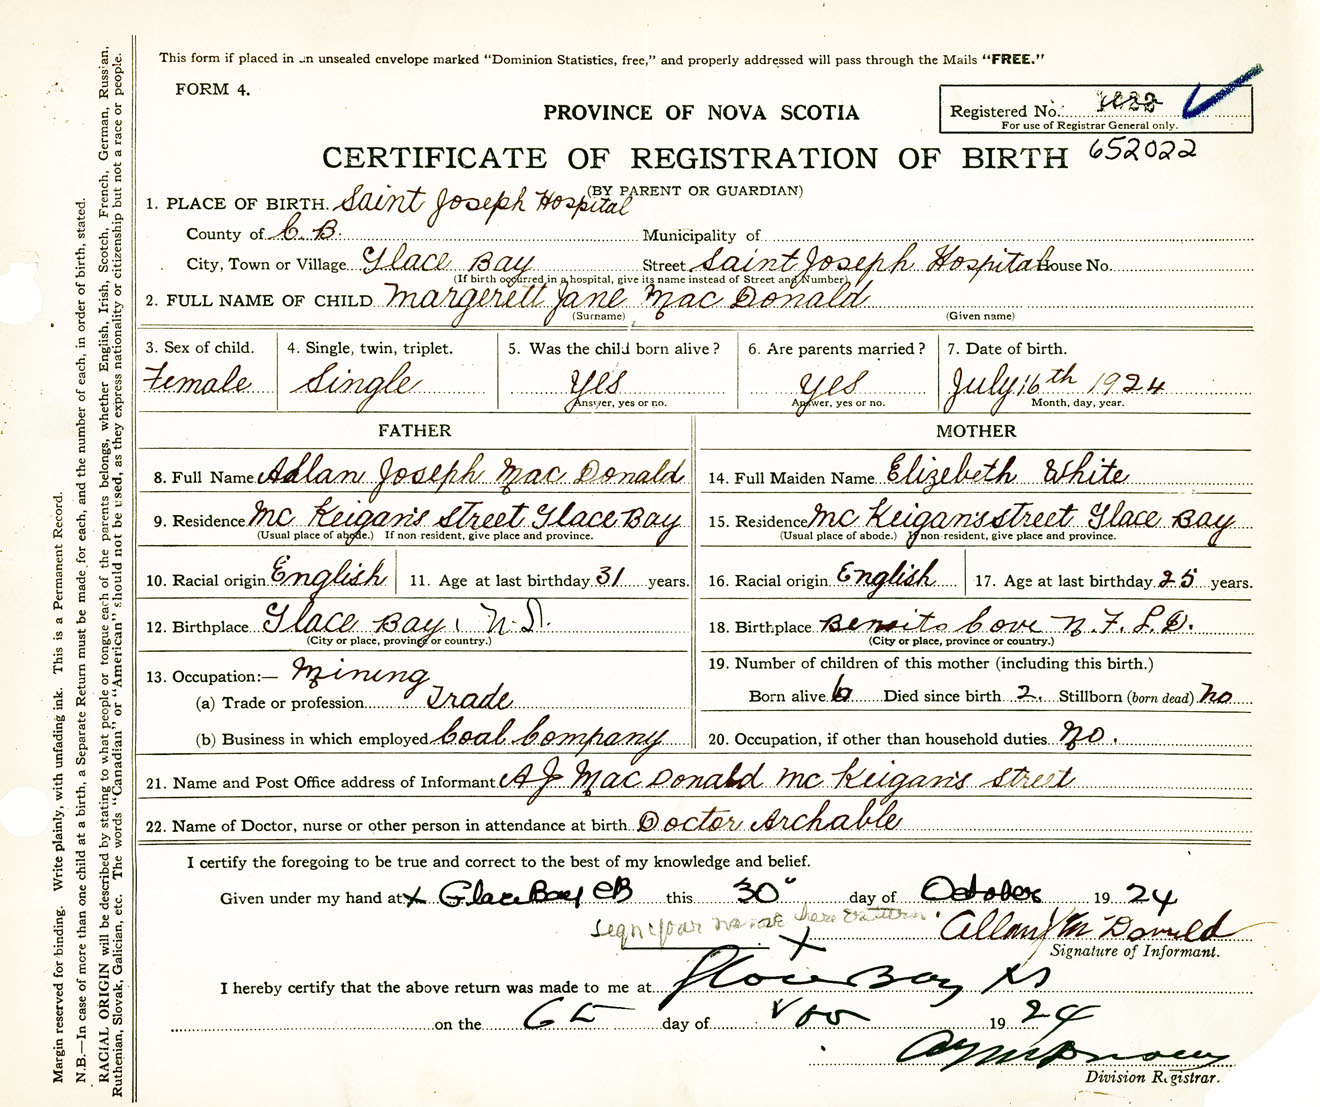 This form if placed in an unsealed envelope marked "Dominion Statistics, free," and properly addressed will pass through the Mails "FREE."
FORM 4.
PROVINCE OF NOVA SCOTIA
Registered No.
For use of Registrar General only.
CERTIFICATE OF REGISTRATION OF BIRTH 652022
(BY PARENT OR GUARDIAN)
1. PLACE OF BIRTH. Saint Joseph Hospital
County of C. B. Municipality of
City, Town or Village Glace Bay Street Saint Joseph Hospital House No.
(If birth occurred in a hospital, give its name instead of Street and Number)
2. FULL NAME OF CHILD Margerett Jane Mac Donald
(Surname) (Given name)
3. Sex of child. 4. Single, twin, triplet. 5. Was the child born alive? 6. Are parents married? 7. Date of birth.
Female Single Yes Yes July 16th 1924
Answer, yes or no. Answer, yes or no. Month, day, year.
FATHER MOTHER
8. Full Name Allan Joseph Mac Donald 14. Full Maiden Name Elizebeth White
9. Residence Mc Keigan's Street Glace Bay 15. Residence Mc Keigan's Street Glace Bay
(Usual place of abode.) If non-resident, give place and province. (Usual place of abode.) If non-resident, give place and province.
10. Racial origin English 11. Age at last birthday 31 years. 16. Racial origin English 17. Age at last birthday 25 years.
12. Birthplace Glace Bay, N.S. 18. Birthplace Cove N. F. L. D.
(City or place, province or country.) (City or place, province or country.)
13. Occupation:— Mining 19. Number of children of this mother (including this birth.)
(a) Trade or profession Trade Born alive 6 Died since birth 2. Stillborn (born dead) No
(b) Business in which employed Coal Company 20. Occupation, if other than household duties No.
21. Name and Post Office address of Informant A J Mac Donald Mc Keigan's Street
22. Name of Doctor, nurse or other person in attendance at birth Doctor Archable
I certify the foregoing to be true and correct to the best of my knowledge and belief.
Given under my hand at X Glace Bay CB this 30" day of October 19 24
Sign your name here
Allan J Mc Donald
X
Signature of Informant.
I hereby certify that the above return was made to me at Glace Bay NS
on the 6th day of Nov 19 24
Division Registrar.
Margin reserved for binding. Write plainly, with unfading ink. This is a Permanent Record.
N.B.—In case of more than one child at a birth, a Separate Return must be made for each, and the number of each, in order of birth, stated.
RACIAL ORIGIN will be described by stating to what people or tongue each of the parents belongs, whether English, Irish, Scotch, French, German, Russian,
Ruthenian, Slovak, Galician, etc. The words "Canadian" or "American" should not be used, as they express nationality or citizenship but not a race or people.